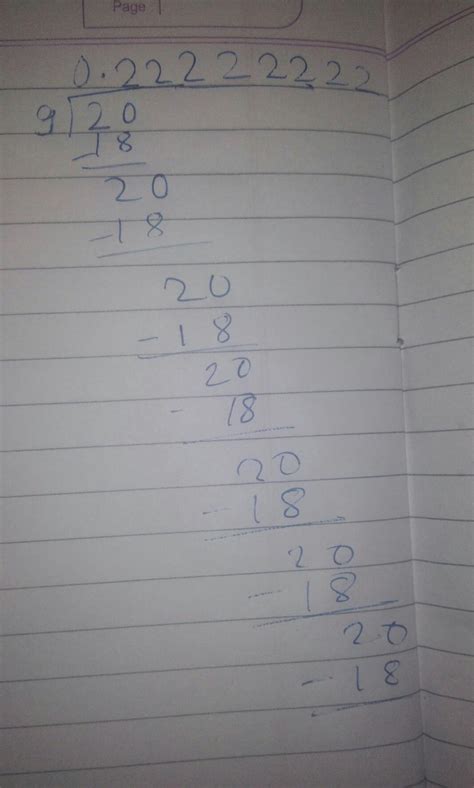 Page
0.222222222
9)20
-18
20
-18
20
-18
20
-18
20
-18
20
-18
20
-18